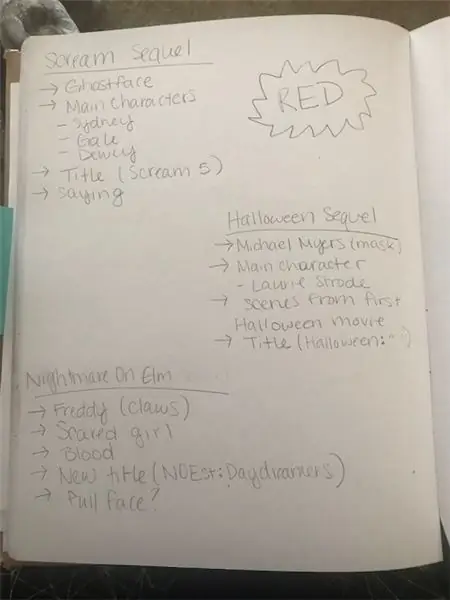 Scream Sequel
→ Ghostface
→ Main Characters
- Sydney
- Gale
- Dewey
→ Title (Scream 5)
→ saying
RED
Halloween Sequel
→ Michael Myers (mask)
→ Main character
- Laurie Strode
→ scenes from first
Halloween movie
→ Title (Halloween: " ")
Nightmare On Elm
→ Freddy (claws)
→ Scared girl
→ Blood
→ New title (NOEst: Daydreamers)
→ Full face?